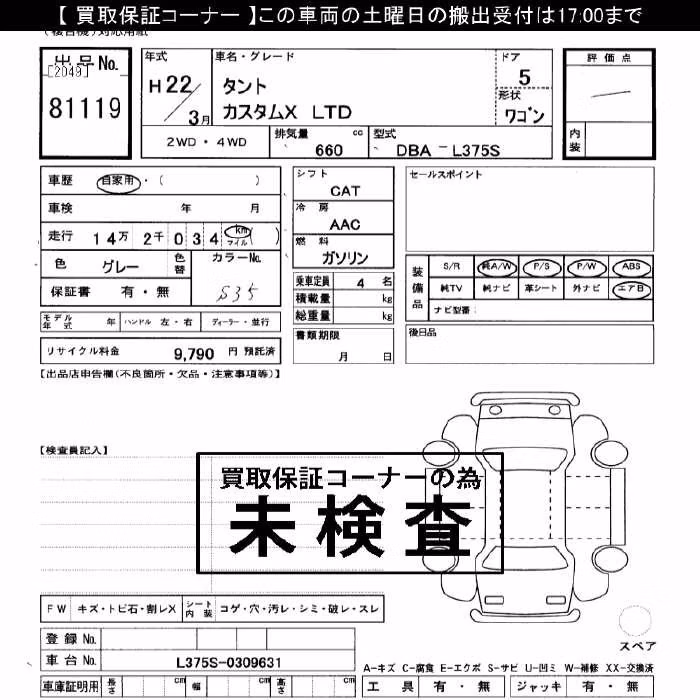 【 買取保証コーナー 】この車両の土曜日の搬出受付は17:00まで
出品No.
[2049]
81119
年式
H22/3月
車名・グレード
タント
カスタムX LTD
ドア
5
形状
ワゴン
評価点
内装
2WD・4WD
排気量 cc
660
型式
DBA-L375S
車歴 自家用・( )
車検 年 月
走行 14万 2千 034 km マイル ( )
色 グレー 色替
カラーNo.
S35
保証書 有・無
シフト
CAT
冷房
AAC
燃料
ガソリン
乗車定員 4 名
積載量 kg
総重量 kg
書類期限
月 日
セールスポイント
装備品
S/R 純A/W P/S P/W ABS
純TV 純ナビ 革シート 外ナビ エアB
ナビ型番：
後日品
モデル年式 年 ハンドル 左・右 ディーラー・並行
リサイクル料金 9,790 円 預託済
【出品店申告欄(不良箇所・欠品・注意事項等)】
【検査員記入】
買取保証コーナーの為
未検査
FW キズ・トビ石・割レX シート内装 コゲ・穴・汚レ・シミ・破レ・スレ
登録No.
車台No. L375S-0309631
車庫証明用 長さ cm 幅 cm 高さ cm
スペア
A-キズ C-腐食 E-エクボ S-サビ U-凹ミ W-補修 XX-交換済
工具 有・無 ジャッキ 有・無